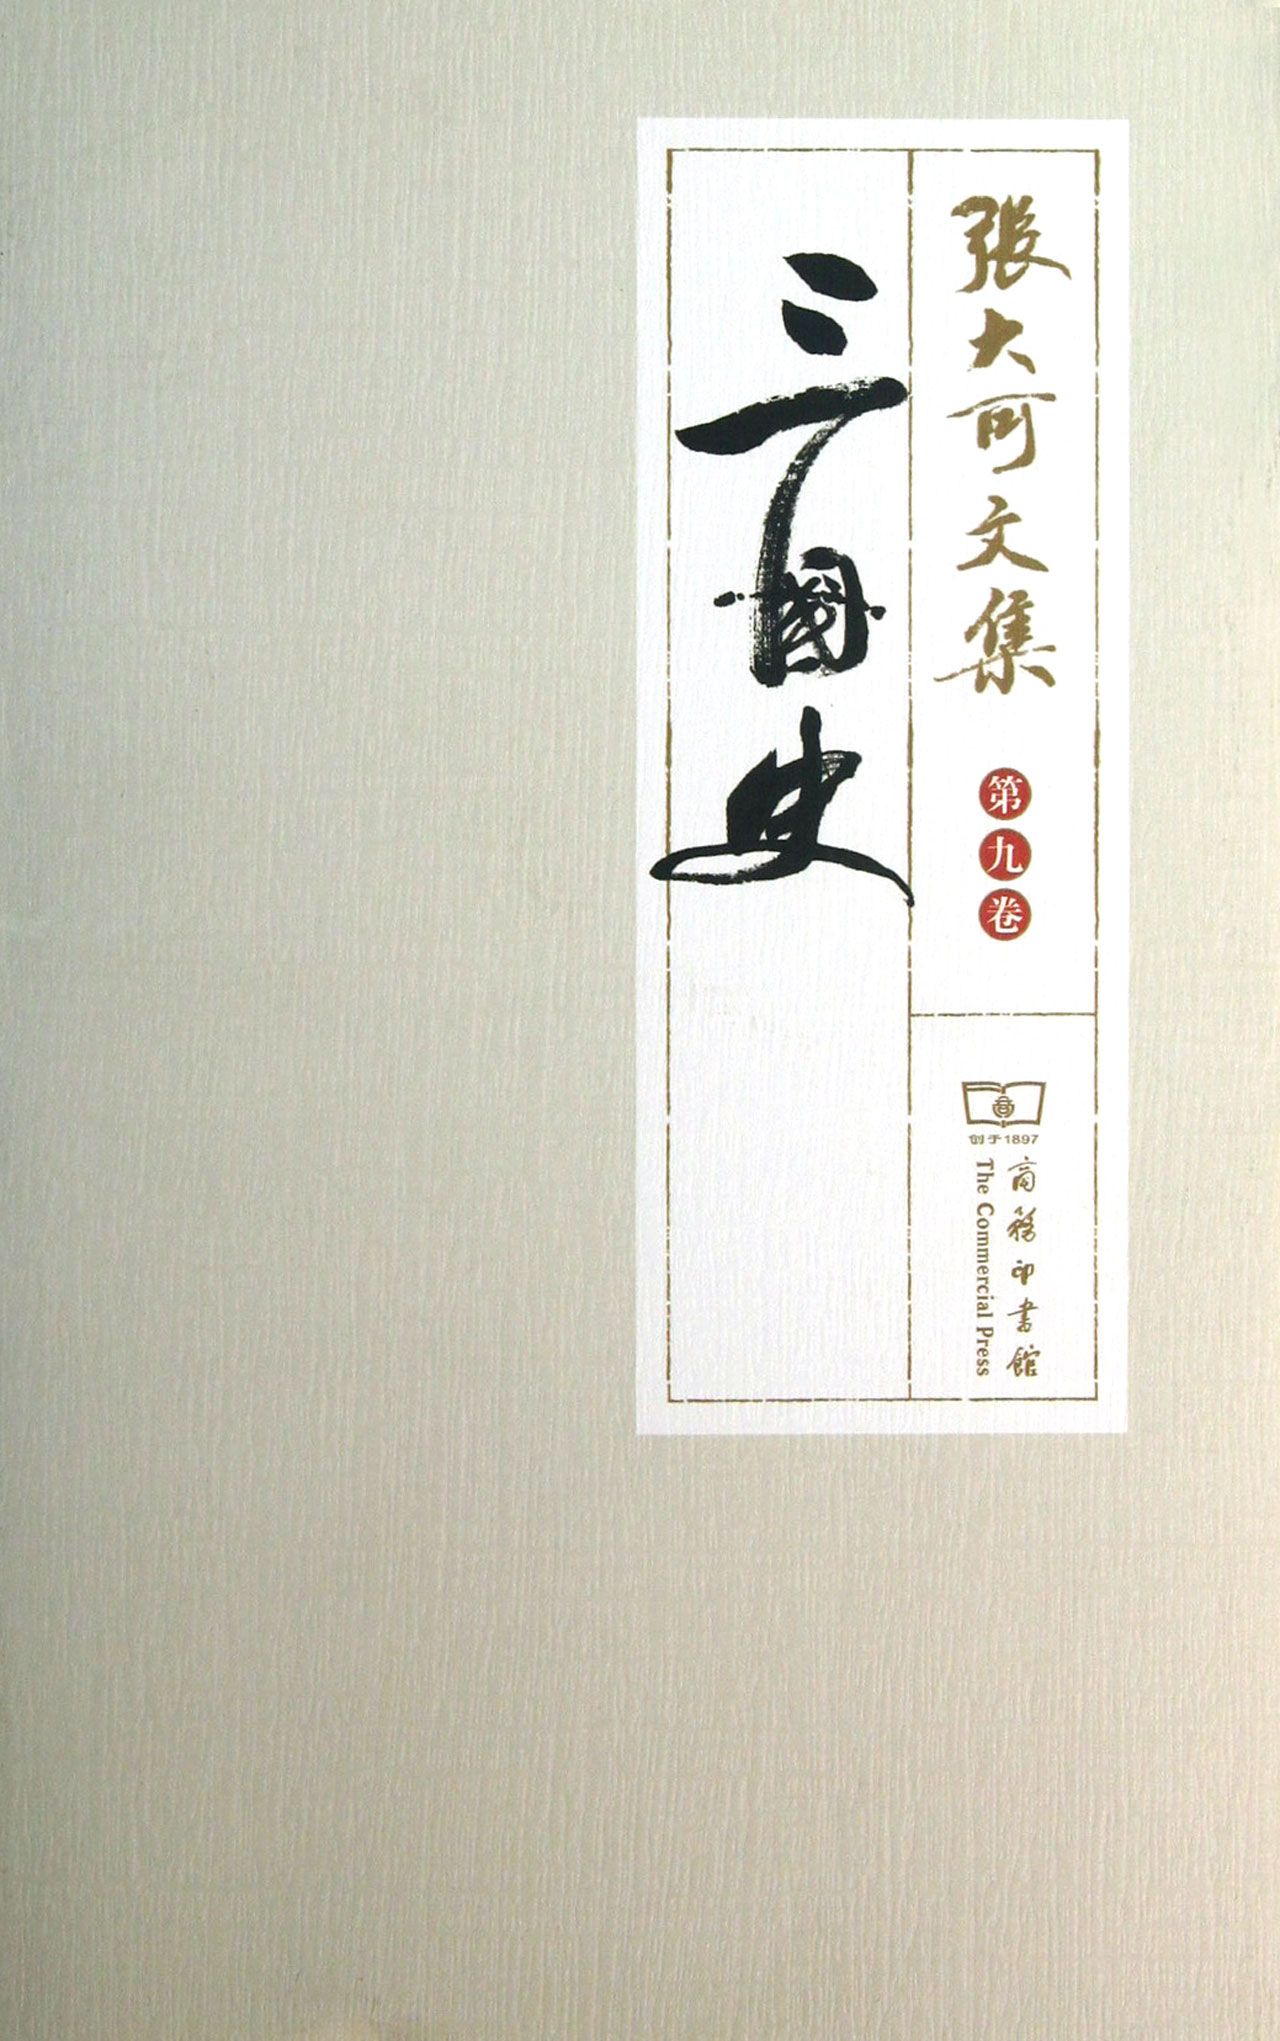 張大可文集
第九卷
三國史
商
创于1897
商務印書館
The Commercial Press